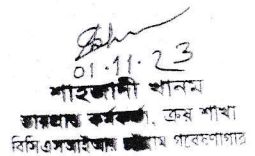 01.11.23
শাহজাদী খানম
ভারপ্রাপ্ত কর্মকর্তা, ক্রয় শাখা
বিসিএসআইআর চট্টগ্রাম গবেষণাগার